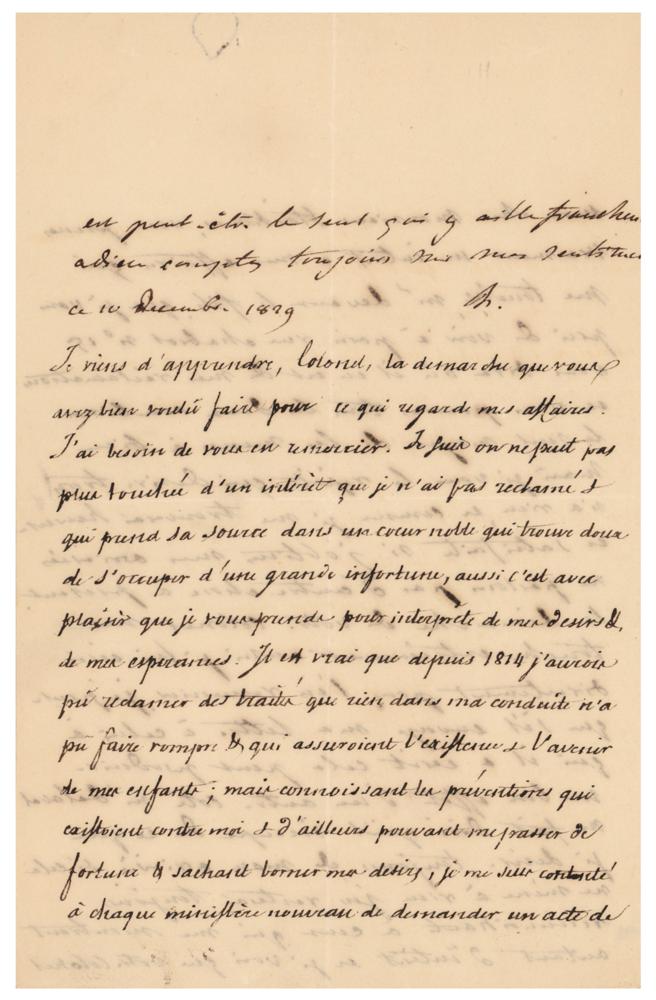 est peut-être le seul qui y aille franchem
adieu comptez toujours sur mes sentimen
ce 10 Decembre 1829 h.
Je viens d'apprendre, Colonel, la demarche que vous
avez bien voulu faire pour ce qui regarde mes affaires.
J'ai besoin de vous en remercier. Je suis on ne peut pas
plus touchée d'un intérêt que je n'ai pas reclamé &
qui prend sa source dans un coeur noble qui trouve doux
de s'occuper d'une grande infortune, aussi c'est avec
plaisir que je vous prends pour interprète de mes desirs &
de mes esperances. Il est vrai que depuis 1814 j'aurois
pû reclamer des traités que rien dans ma conduite n'a
pû faire rompre & qui assuroient l'existence & l'avenir
de mes enfants ; mais connoissant les préventions qui
existoient contre moi & d'ailleurs pouvant me passer de
fortune & sachant borner mes desirs, je me suis contenté
à chaque ministère nouveau de demander un acte de